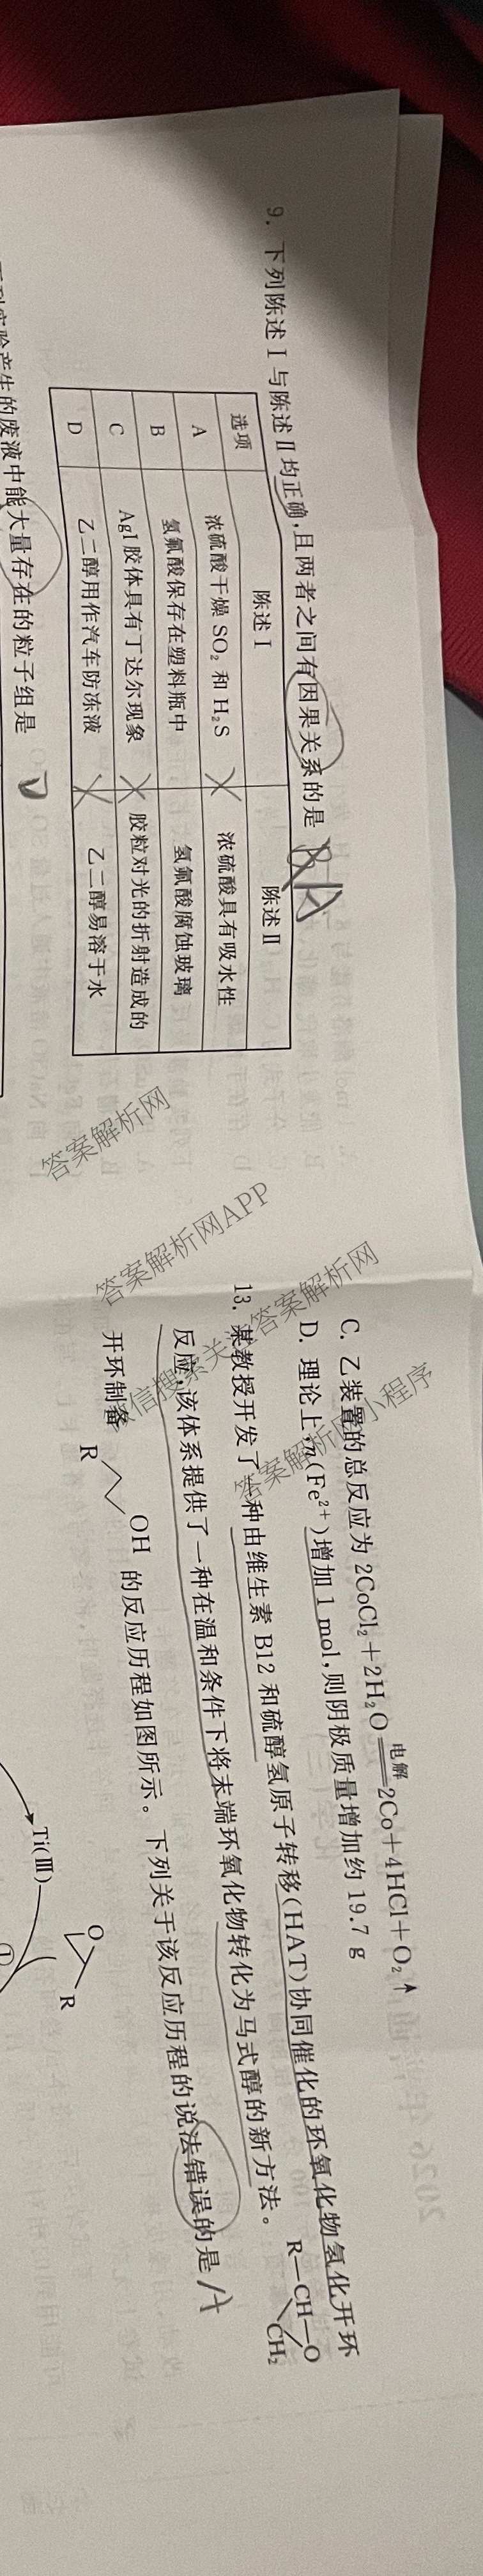 9. 下列陈述Ⅰ与陈述Ⅱ均正确,且两者之间有因果关系的是
选项 陈述Ⅰ 陈述Ⅱ
A 浓硫酸干燥 SO₂ 和 H₂S 浓硫酸具有吸水性
B 氢氟酸保存在塑料瓶中 氢氟酸腐蚀玻璃
C AgI 胶体具有丁达尔现象 胶粒对光的折射造成的
D 乙二醇用作汽车防冻液 乙二醇易溶于水
产生的废液中能大量存在的粒子组是 D
C. 乙装置的总反应为 2CoCl₂+2H₂O 电解 2Co+4HCl+O₂↑
D. 理论上,n(Fe²⁺)增加 1 mol,则阴极质量增加约 19.7 g
13. 某教授开发了一种由维生素 B12 和硫醇氢原子转移(HAT)协同催化的环氧化物氢化开环
反应,该体系提供了一种在温和条件下将末端环氧化物转化为马式醇的新方法。 R—CH—O CH₂
开环制备 R OH 的反应历程如图所示。下列关于该反应历程的说法错误的是 A
O R
Ti(Ⅲ) ①
答案解析网
答案解析网APP
微信搜索关注答案解析网
答案解析网小程序